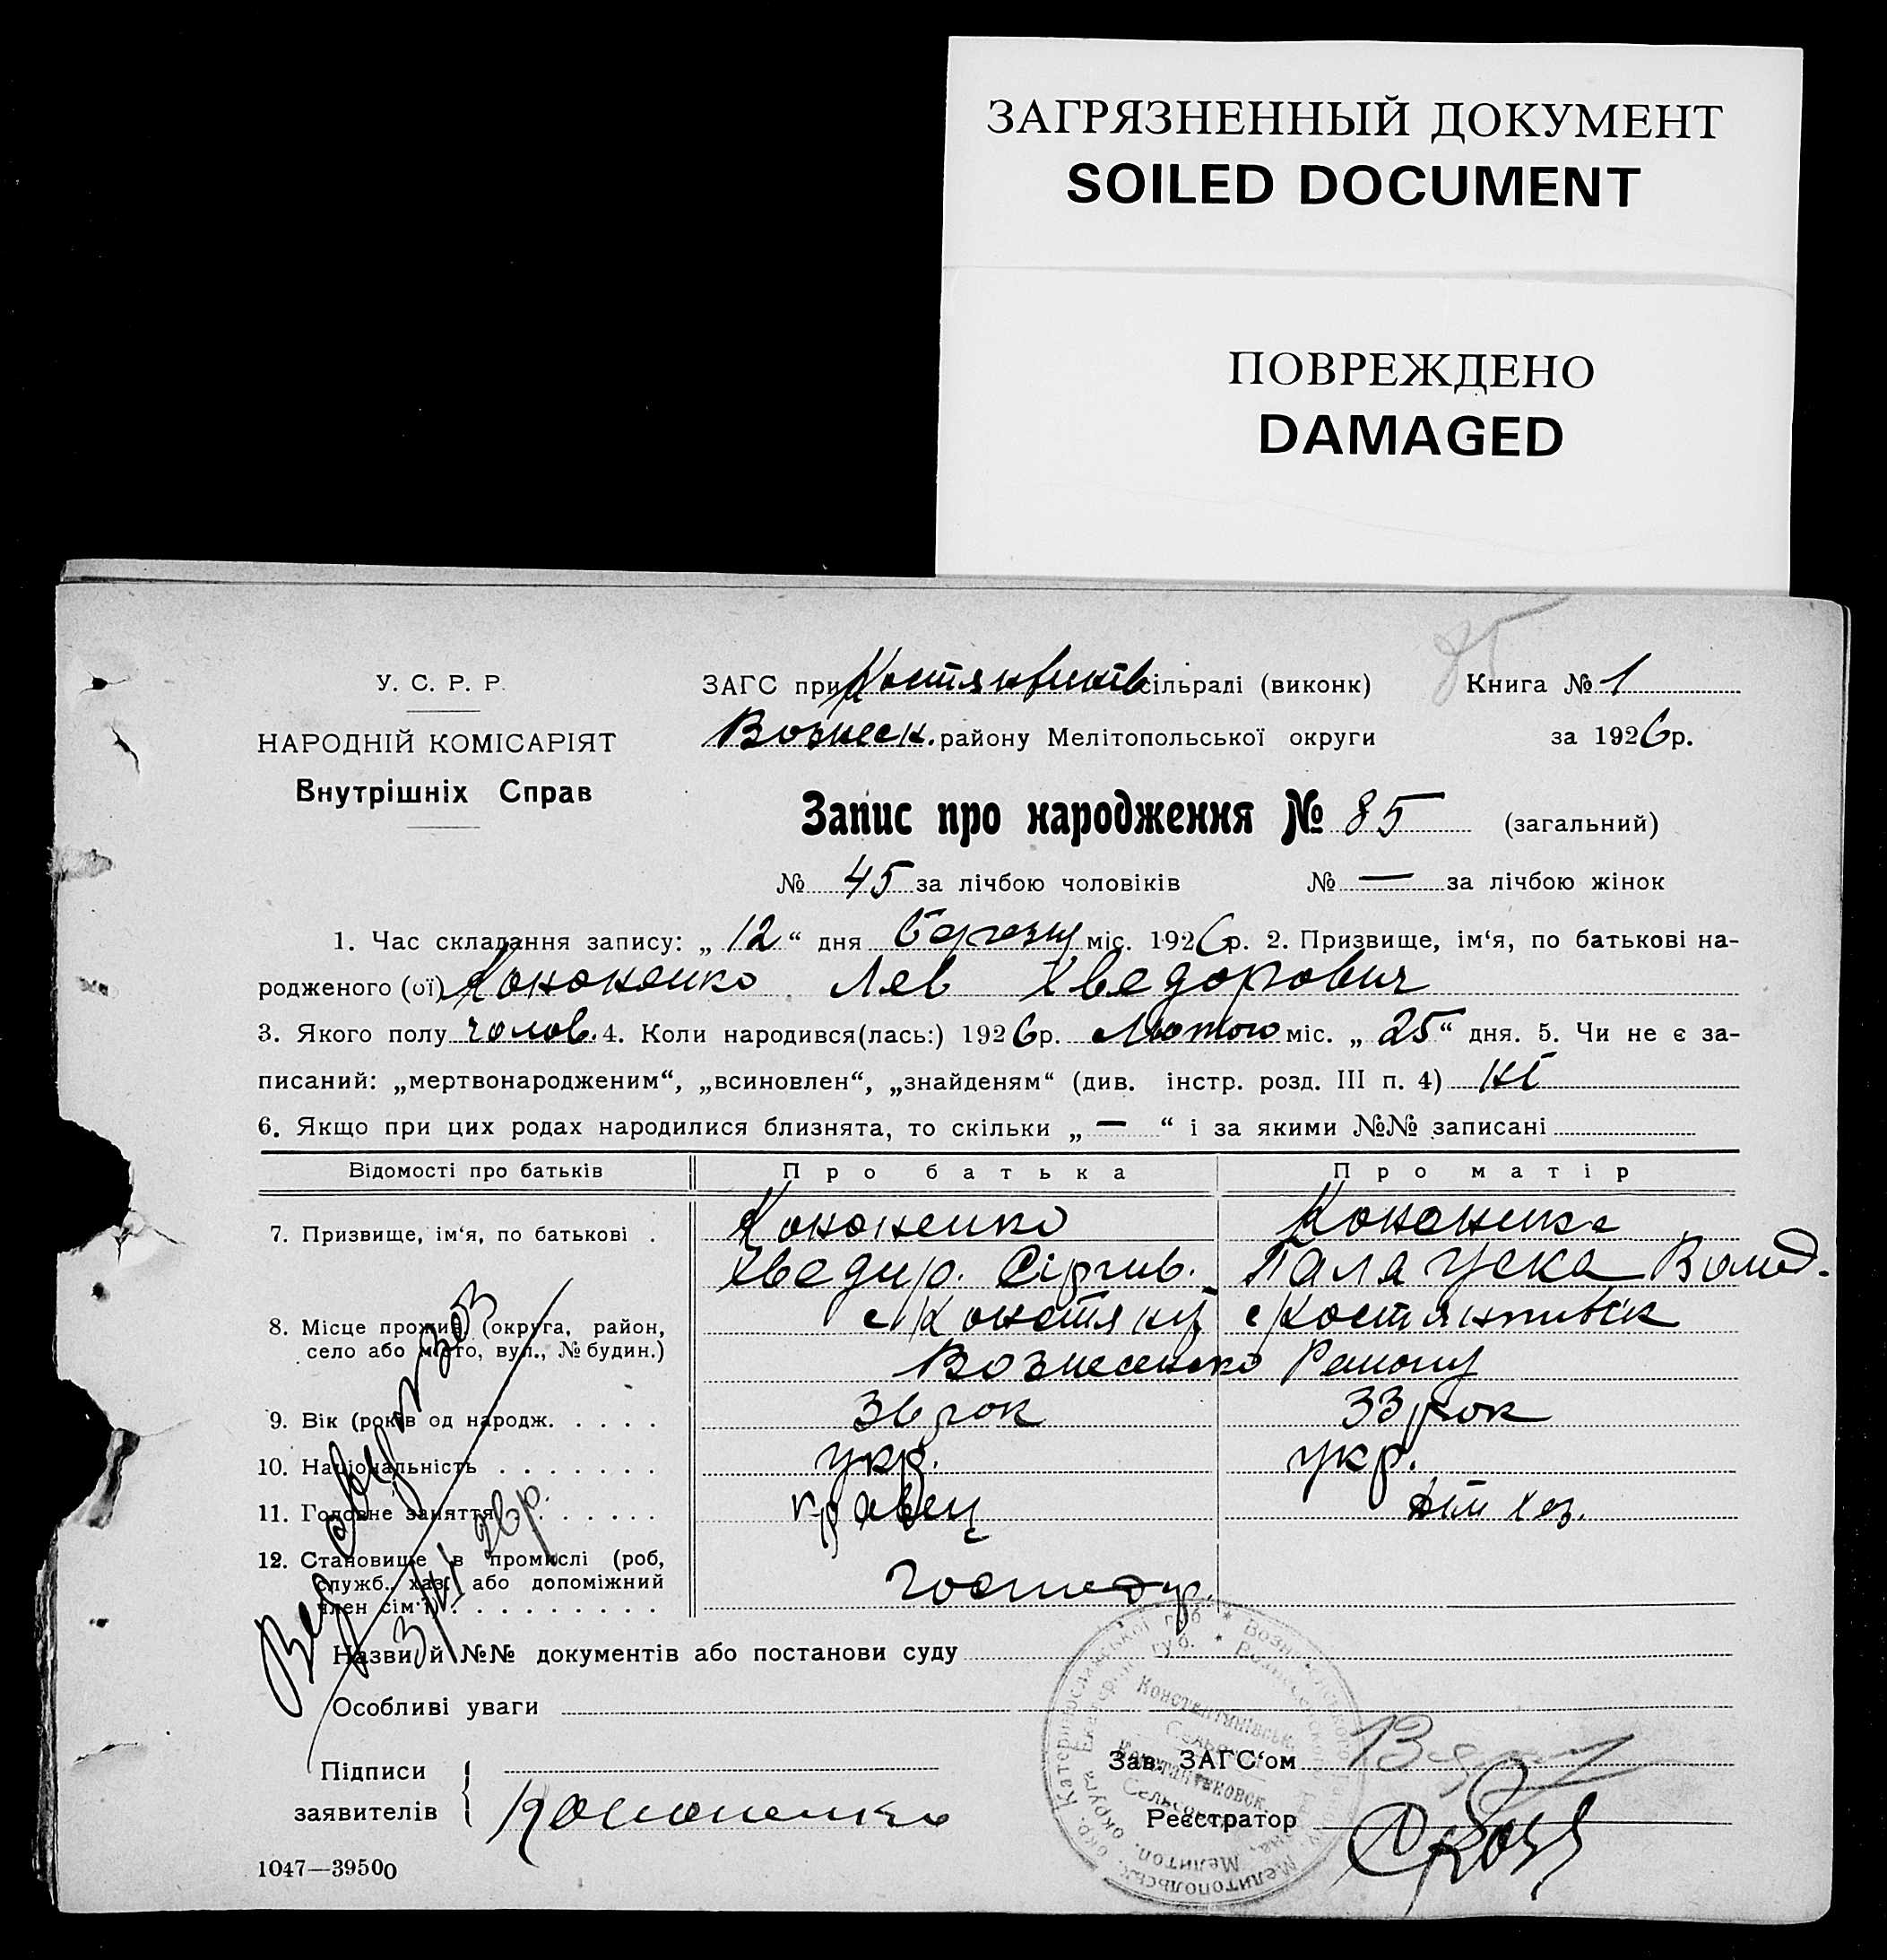 ЗАГРЯЗНЕННЫЙ ДОКУМЕНТ
SOILED DOCUMENT
ПОВРЕЖДЕНО
DAMAGED
85
У. С. Р. Р.
НАРОДНІЙ КОМІСАРІЯТ
Внутрішніх Справ
ЗАГС при сільраді (виконк) Книга № 1
Вознесн. району Мелітопольської округи за 1926 р.
Запис про народження № 85 (загальний)
№ 45 за лічбою чоловіків № — за лічбою жінок
1. Час складання запису: „12“ дня березня міс. 1926 р. 2. Призвище, ім‘я, по батькові на-
родженого (ої) Кононенко Лев Хведорович
3. Якого полу чолов. 4. Коли народився(лась:) 1926 р. Лютого міс. „25“ дня. 5. Чи не є за-
писаний: „мертвонародженим“, „всиновлен“, „знайденям“ (див. інстр. розд. III п. 4) ні
6. Якщо при цих родах народилися близнята, то скільки „—“ і за якими №№ записані
Відомості про батьків Про батька Про матір
7. Призвище, ім‘я, по батькові . Кононенко Кононенко
Хведир. Сіргив. Палажка Волод.
8. Місце прожив. (округа, район, село або місто, вул., № будин.) с Констянт с Костянтивск
Вознесенко Району
9. Вік (років од народж. . . . . 36 рок 33 рок
10. Національність . . . . . . . укр. укр.
11. Головне заняття . . . . . . кравец дом хоз.
12. Становище в промислі (роб, служб., хаз.) або допоміжний член сім‘ї) . . . . . . . . . господ.
Назви й №№ документів або постанови суду
Особливі уваги
Підписи
заявителів Кононенко
Зав. ЗАГС‘ом
Реєстратор
1047—39500